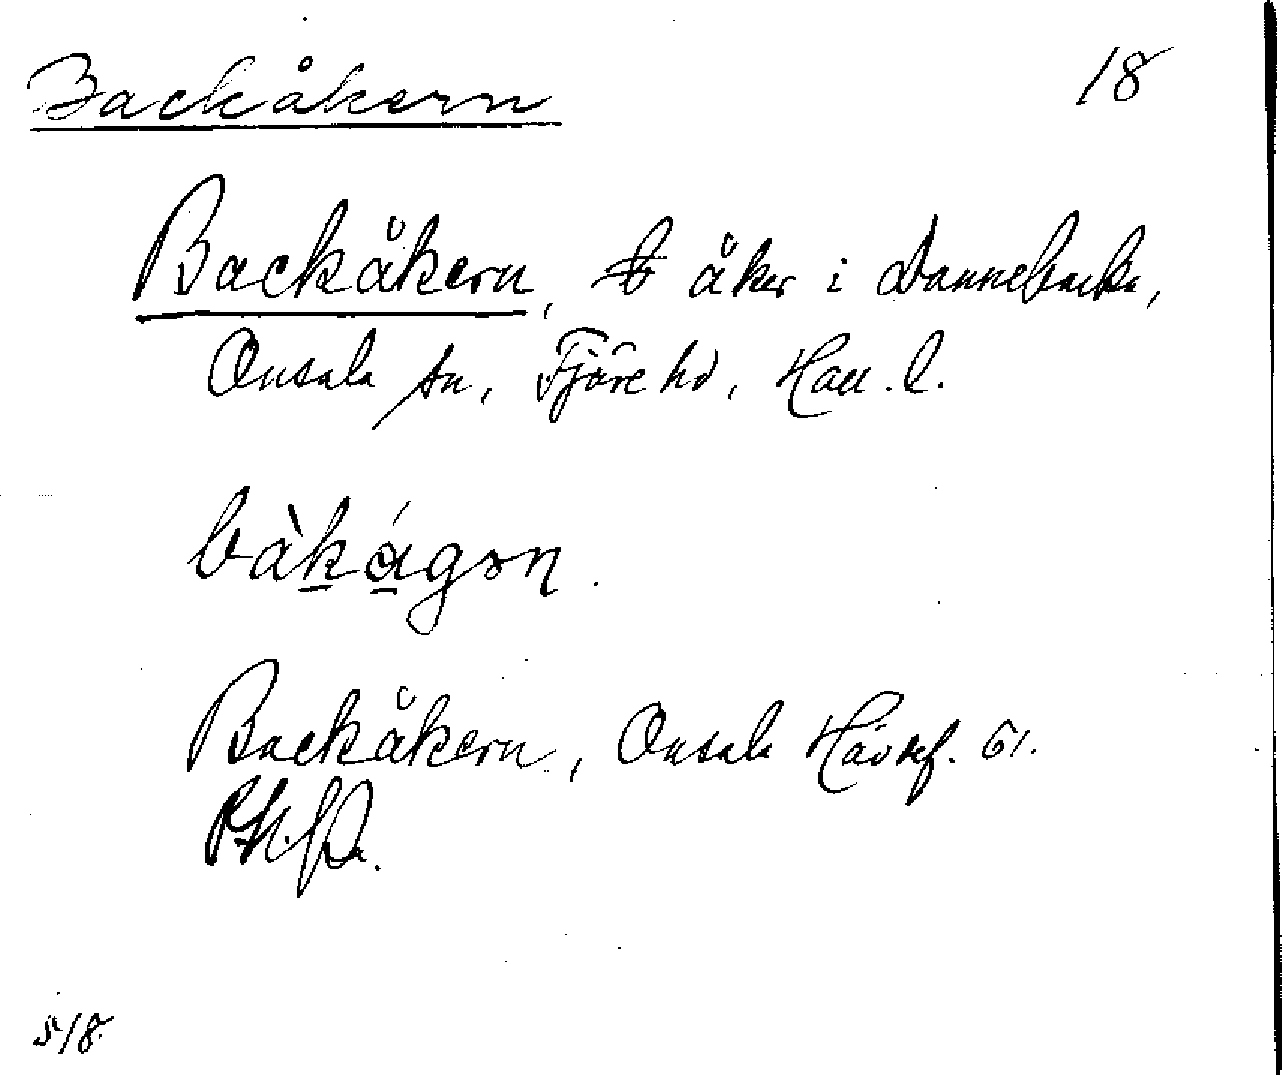 Backåkern 18
Backåkern, åker i Dannebacka,
Onsala sn, Fjäre hd, Hall. l.
bàkágon.
Backåkern, Onsala Hävkf. 61.
518